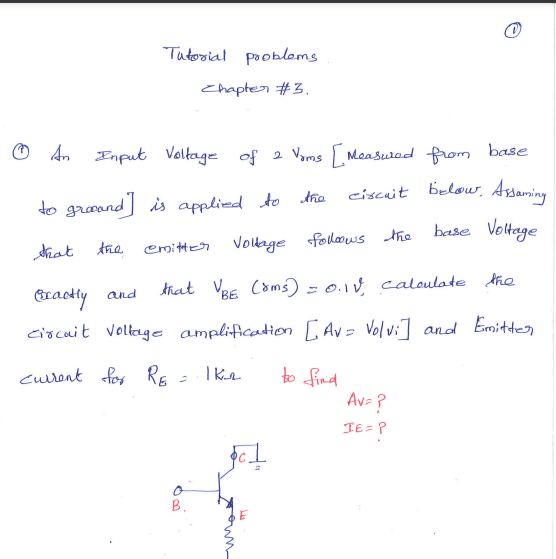 ①
Tutorial problems
Chapter #3.
① An Input Voltage of 2 Vrms [Measured from base
to ground] is applied to the circuit below. Assuming
that the emitter voltage follows the base Voltage
Exactly and that VBE (rms) = 0.1V, calculate the
circuit voltage amplification [Av = Vo/Vi] and Emitter
current for RE = 1KΩ to find
Av = ?
IE = ?
C
B.
E